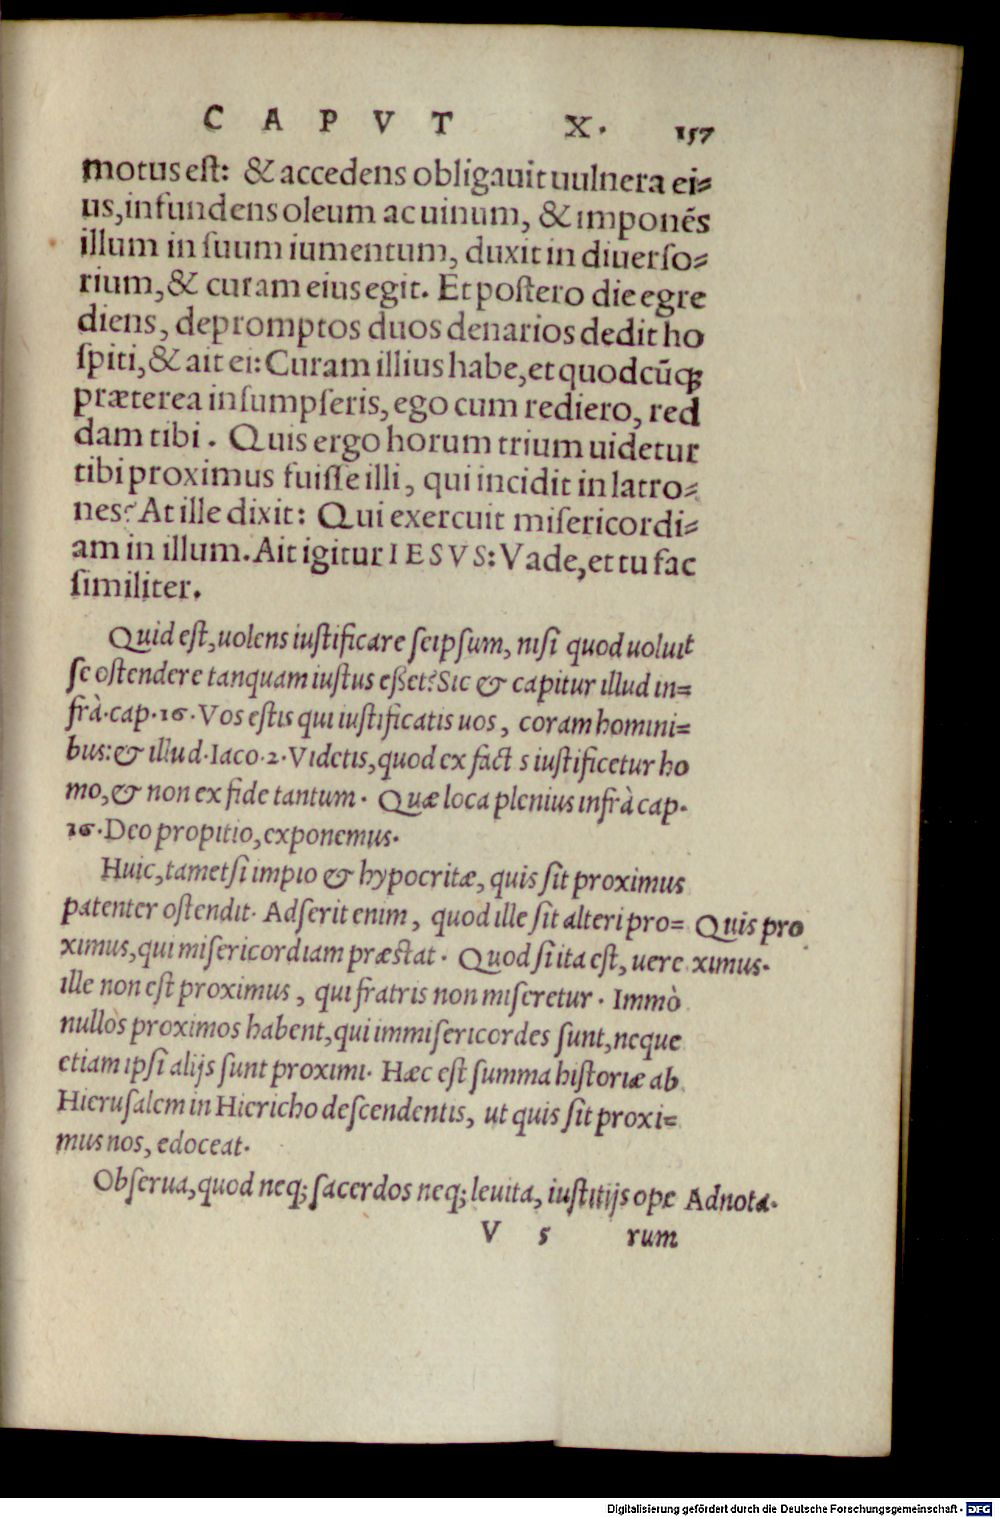 CAPVT X. 157
motus est: & accedens obligauit uulnera ei⸗
us, infundens oleum ac uinum, & imponẽs
illum in suum iumentum, duxit in diuerso⸗
rium, & curam eius egit. Et postero die egre
diens, depromptos duos denarios dedit ho
spiti, & ait ei: Curam illius habe, et quodcũq;
præterea insumpseris, ego cum rediero, red
dam tibi. Quis ergo horum trium uidetur
tibi proximus fuisse illi, qui incidit in latro⸗
nes? At ille dixit: Qui exercuit misericordi⸗
am in illum. Ait igitur IESVS: Vade, et tu fac
similiter.
Quid est, uolens iustificare seipsum, nisi quod uoluit
se ostendere tanquam iustus eßet? Sic & capitur illud in=
frà.cap.16. Vos estis qui iustificatis uos, coram homini=
bus: & illud. Iaco.2. Videtis, quod ex fact s iustificetur ho
mo, & non ex fide tantum. Quæ loca plenius infrà cap.
16. Deo propitio, exponemus.
Huic, tametsi impio & hypocritæ, quis sit proximus
patenter ostendit. Adserit enim, quod ille sit alteri pro=
ximus, qui misericordiam præstat. Quod si ita est, uere
ille non est proximus, qui fratris non miseretur. Immò
nullos proximos habent, qui immisericordes sunt, neque
etiam ipsi alijs sunt proximi. Hæc est summa historiæ ab
Hierusalem in Hiericho descendentis, ut quis sit proxi=
mus nos, edoceat.
Obserua, quod neq; sacerdos neq; leuita, iustitijs ope
V 5 rum
Quis pro
ximus.
Adnota.
Digitalisierung gefördert durch die Deutsche Forschungsgemeinschaft - DFG